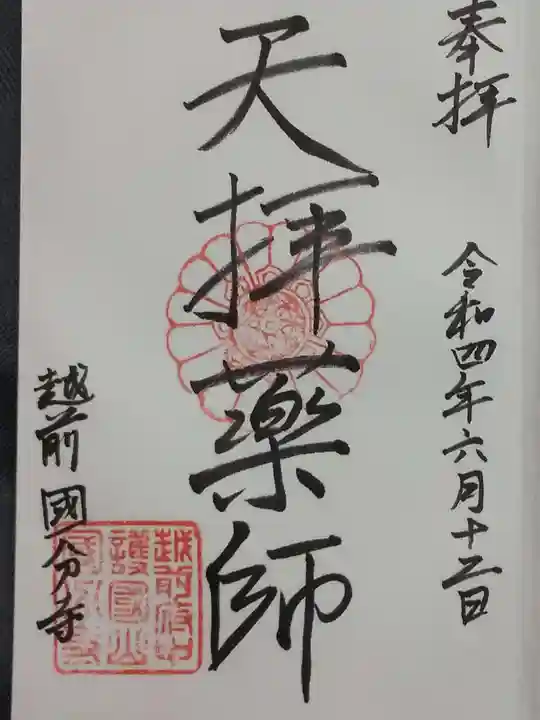 奉拝
令和四年六月十二日
天拝薬師
越前國分寺
越前府中
護国山